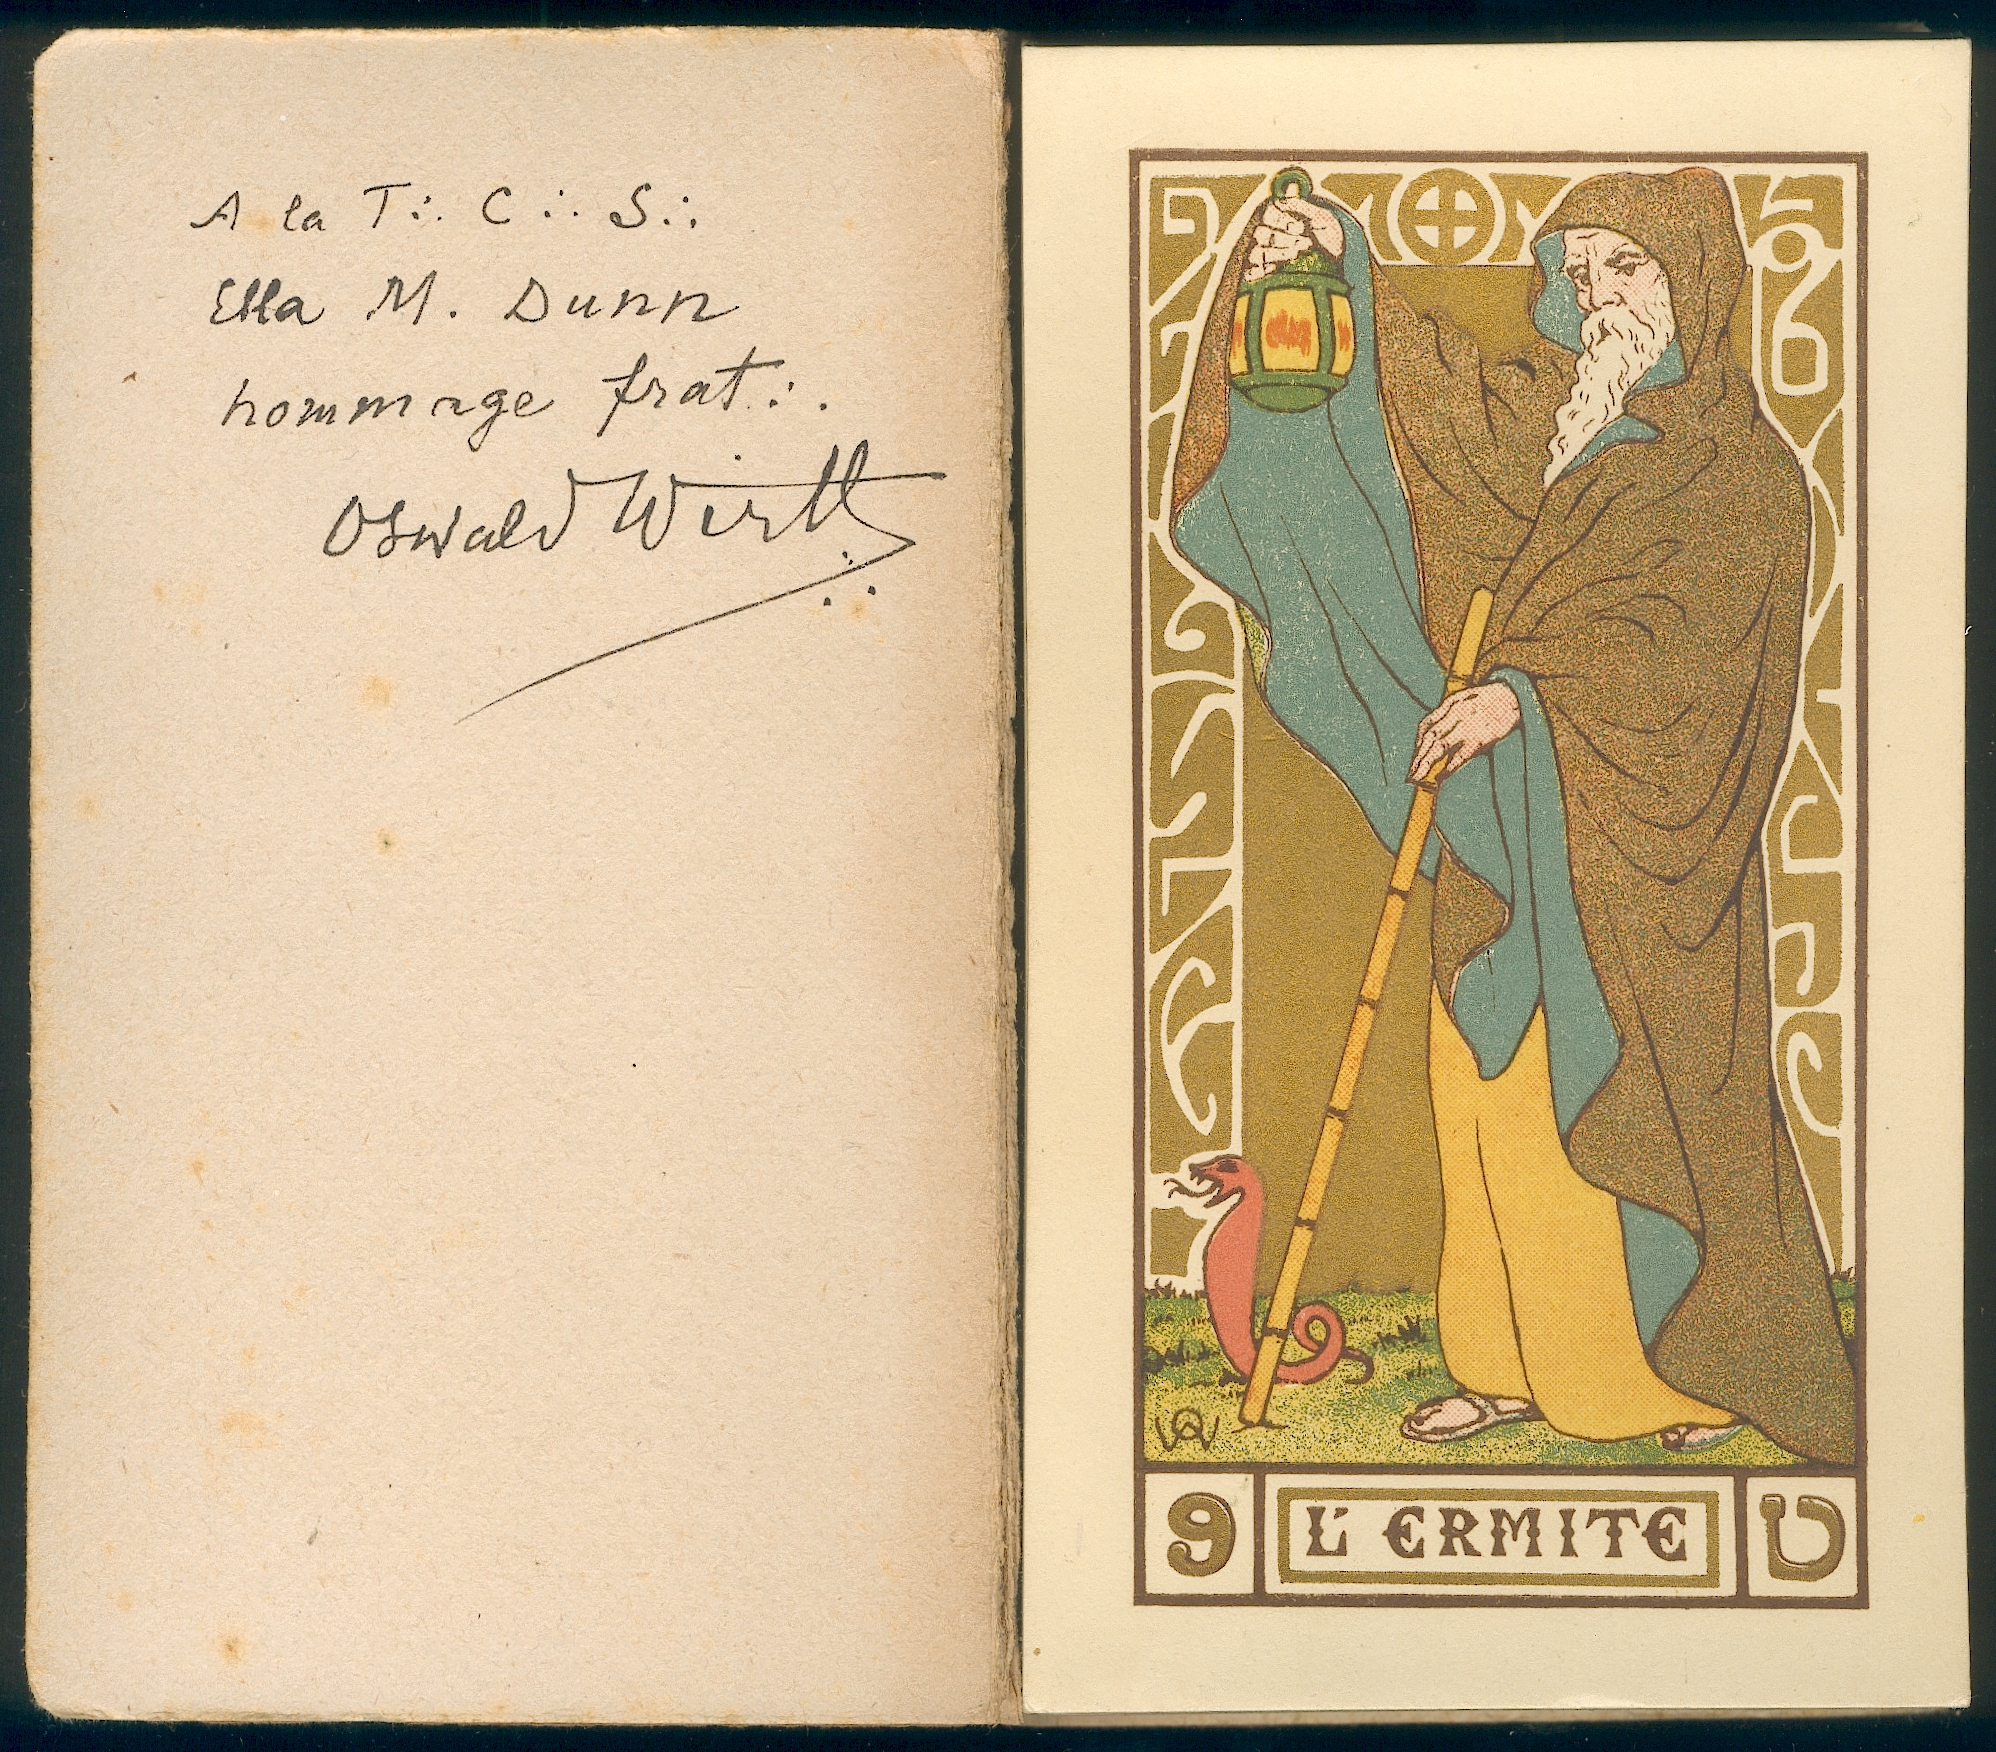 A la T∴ C∴ S∴
Ella M. Dunn
hommage frat∴
Oswald Wirth
∴
OW
9
L'ERMITE
ט